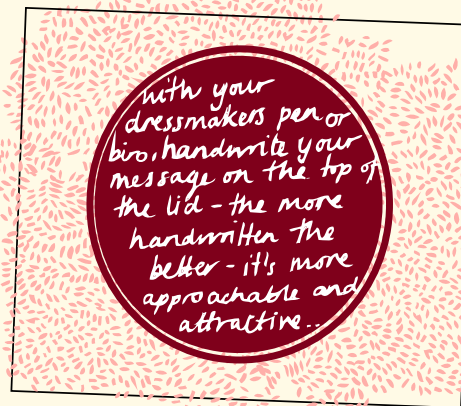 with your
dressmakers pen or
biro, handwrite your
message on the top of
the lid - the more
handwritten the
better - it's more
approachable and
attractive..